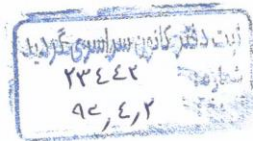 ثبت دفتر کانون سراسری گردید
شماره ۲۳۴۴۲
۹۴٫۴٫۲